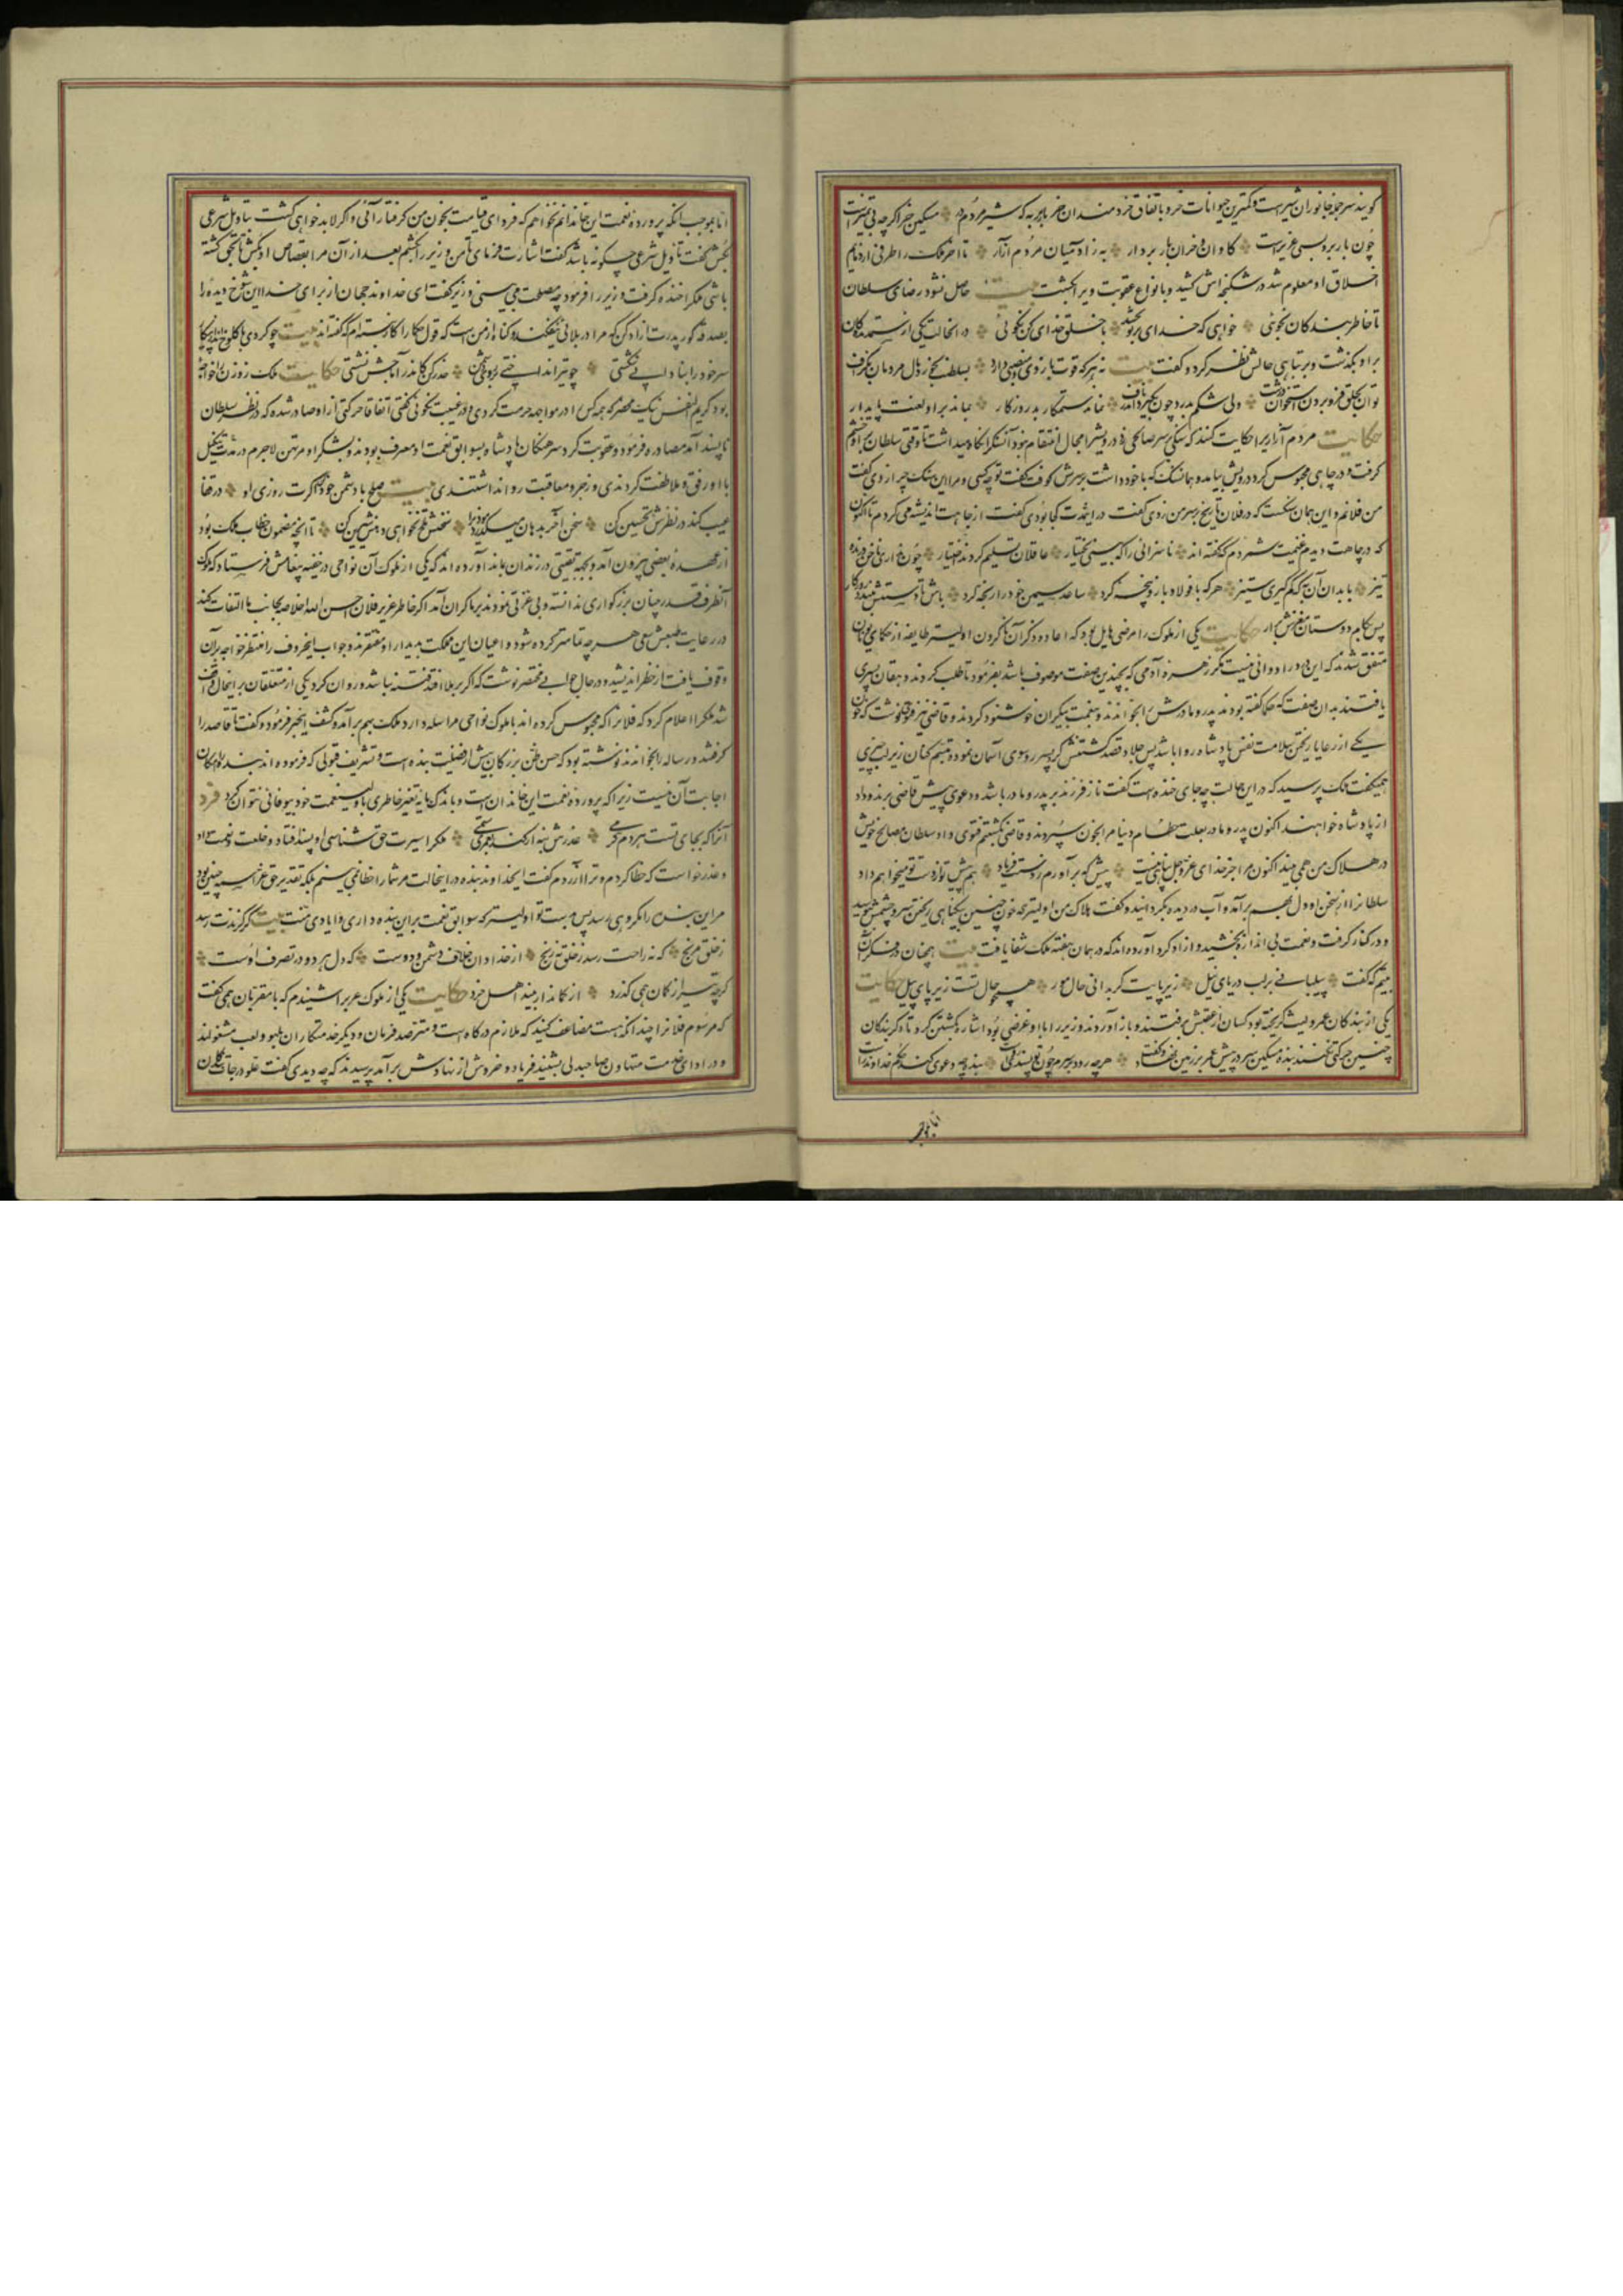 گویند سر جمله جانوران شیرست و کمترین حیوانات خر و باتفاق خردمندان خر باربر به که شیر مردم در مسکین خر اگرچه بی تمیزست
چون بار برد بسی عزیزست گاوان و خران بار بردار به ز آدمیان مردم آزار تا ملک را طرفی از ذمایم
اخلاق او معلوم شد در شکنجه اش کشید و بانواع عقوبت ویرا بکشت بیت حاصل نشود رضای سلطان
تا خاطر بندگان نجوئی خواهی که خدای بر تو بخشد با خلق خدای کن نکوئی در انحالت یکی از ستمدیدگان
برا و بگذشت و بر تباهی حالش نظر کرد و گفت بیت نه هرکه قوت بازوی و منصبی دارد بسلطنت بخورد مال مردمان بگزاف
توان بحلق فرو بردن استخوان درشت ولی شکم بدرد چون بگیرد اندر ناف نماند ستمکار بد روزگار بماند برا و لعنت پایدار
حکایت مردم آزاریرا حکایت کنند که سنگی بر سر صالحی زد درویشرا مجال انتقام نبود آن سنگ را نگاه میداشت تا وقتی سلطان بر او خشم
گرفت و در چاهی محبوس کرد درویش بیامد و همان سنگ که با خود داشت بر سرش کوفت گفت تو چه کسی و مرا این سنگ چرا زدی گفت
من فلانم و این همان سنگست که در فلان تاریخ بر سر من زدی گفت در این مدت کجا بودی گفت از جاهت اندیشه می کردم تا اکنون
که در چاهت دیدم غنیمت شمردم که گفته اند ناسزائی را که بینی بختیار عاقلان تسلیم کردند اختیار چون نداری ناخن درنده
تیز با بدان آن به که کم گیری ستیز هرکه با فولاد بازو پنجه کرد ساعد سیمین خود را رنجه کرد باش تا دستش ببندد روزگار
پس بکام دوستان مغزش برار حکایت یکی از ملوک را مرضی هایل بود که اعاده ذکر آن ناکردن اولیتر طایفه از حکمای یونان
متفق شدند که این درد را دوائی نیست مگر زهره آدمی که بچندین صفت موصوف باشد بفرمود تا طلب کردند دهقان پسری
یافتند بدان صفت که حکما گفته بودند پدر و مادرش را بخواندند و بنعمت بیکران خوشنود کردند و قاضی نیز فتوی نوشت که خون
یکی از رعایا ریختن سلامت نفس پادشاه روا باشد پس جلاد قصد کشتنش کرد پسر روی سوی آسمان نمود و تبسم کنان زیر لب چیزی
همیگفت ملک پرسید که در این حالت چه جای خنده است گفت ناز فرزند بر پدر و مادر باشد و دعوی پیش قاضی برند و داد
از پادشاه خواهند اکنون پدر و مادر بعلت حطام دنیا مرا بخون سپردند و قاضی بکشتنم فتوی داد و سلطان مصالح خویش
در هلاک من همی بیند اکنون مرا جز خدای عز و جل پناهی نیست پیش که برآورم ز دستت فریاد هم پیش تو از دست تو میخواهم داد
سلطانرا از سخن او دل بهم برآمد و آب در دیده بگردانید و گفت هلاک من اولیتر که خون چنین بیگناهی ریختن سر و چشمش ببوسید
و در کنار گرفت و نعمت بی اندازه بخشید و آزاد کرد آورده اند که در همان هفته ملک شفا یافت بیت همچنان در فکر آن
بیتم که گفت پیلبانی بر لب دریای نیل زیر پایت گر بدانی حال مور همچو حال تست زیر پای پیل حکایت
یکی از بندگان عمرو لیث گریخته بود کسان از عقبش برفتند و باز آوردند وزیر را با او غرضی بود اشاره بکشتن کرد تا دگر بندگان
چنین حرکتی نکنند بنده مسکین سر در پیش عمر بر زمین نهاد و گفت هرچه رود بر سرم چون تو پسندی رواست بنده چه دعوی کند حکم خداوند راست
اما بموجب
اما بموجب آنکه پرورده نعمت این خاندانم نخواهم که فردای قیامت بخون من گرفتار آئی و اگر لابد خواهی کشت بتاویل شرعی
بکش گفت تاویل شرعی چگونه باشد گفت اشارت فرمای تا من وزیر را بکشم بعد از آن مرا بقصاص او بکش تا بحق کشته
باشی ملک را خنده گرفت وزیر را فرمود چه مصلحت می بینی وزیر گفت ای خداوند جهان از برای خدا این شوخ دیده را
بصدقه گور پدرت آزاد کن که مرا در بلائی نیفکند و گناه از من است که قول حکما را کار نبسته ام که گفته اند بیت چو کردی با کلوخ انداز پیکار
سر خود را بنادانی شکستی چو تیر انداختی بر روی دشمن حذر کن کاندر آماجش نشستی حکایت ملک زوزن را خواجه
بود کریم النفس نیک محضر که همه کس را در مواجهه حرمت کردی و در غیبت نکوئی گفتی اتفاقا حرکتی از او صادر شده که در نظر سلطان
ناپسند آمد مصادره فرمود و عقوبت کرد سرهنگان پادشاه بسوابق نعمت او معترف بودند و بشکر او مرتهن لاجرم در مدت توکیل
با او رفق و ملاطفت کردندی و زجر و معاقبت روا نداشتندی بیت صلح با دشمن خود کن گرت روزی او در قفا
عیب کند در نظرش تحسین کن سخن آخر بدهان میگذرد موذی را سخنش تلخ نخواهی دهنش شیرین کن تا آنچه مضمون خطاب ملک بود
از عهده بعضی بیرون آمد و بجهه بقیتی در زندان بماند آورده اند که یکی از ملوک آن نواحی در خفیه پیغامش فرستاد که ملوک
آنطرف قدر چنان بزرگواری ندانسته و بی عزتی نمودند بر ما گران آمد اگر خاطر عزیز فلان احسن الله خلاصه بجانب ما التفات کند
در رعایت طبعش سعی هر چه تمامتر کرده شود و اعیان این مملکت بدیدار او مفتقرند و جواب این حروف را منتظر خواجه بر آن
وقوف یافت از خطر اندیشید و در حال جوابی مختصر نوشت که اگر بر ملا افتد فتنه نباشد و روان کرد یکی از متعلقان بر اینحال واقف
شد ملک را اعلام کرد که فلانرا که محبوس کرده اند با ملوک نواحی مراسله دارد ملک بهم برآمد و کشف این خبر فرمود و گفت تا قاصد را
گرفتند و رساله را بخواندند نوشته بود که حسن ظن بزرگان بیش از فضیلت بنده است و تشریف قبولی که فرموده اند بنده را امکان
اجابت آن نیست زیرا که پرورده نعمت این خاندان است و باندک مایه تغیر خاطری با ولینعمت خود بیوفائی نتوان کرد فرد
آنرا که بجای تست هر دم کرمی عذرش بنه ار کند بعمری ستمی ملک را سیرت حق شناسی او پسند افتاد و خلعت و نعمت داد
و عذر خواست که خطا کردم و ترا آزردم گفت ایخداوند بنده در اینحالت مر شما را خطا نمی بینم بلکه تقدیر حق عز اسمه چنین بود
مر این بنده را مکروهی رسد پس بدست تو اولیتر که سوابق نعمت بر این بنده داری و ایادی منت بیت گر گزندت رسد
ز خلق مرنج که نه راحت رسد ز خلق نه رنج از خدا دان خلاف دشمن و دوست که دل هر دو در تصرف اوست
گرچه تیر از کمان همی گذرد از کماندار بیند اهل خرد حکایت یکی از ملوک عرب را شنیدم که با مقربان همی گفت
که مرسوم فلانرا چندانکه هست مضاعف کنید که ملازم درگاه است و مترصد فرمان و دیگر خدمتکاران بلهو و لعب مشغولند
و در ادای خدمت متهاون صاحبدلی بشنید فریاد و خروش از نهادش برآمد پرسیدند که چه دیدی گفت علو درجات بندگان